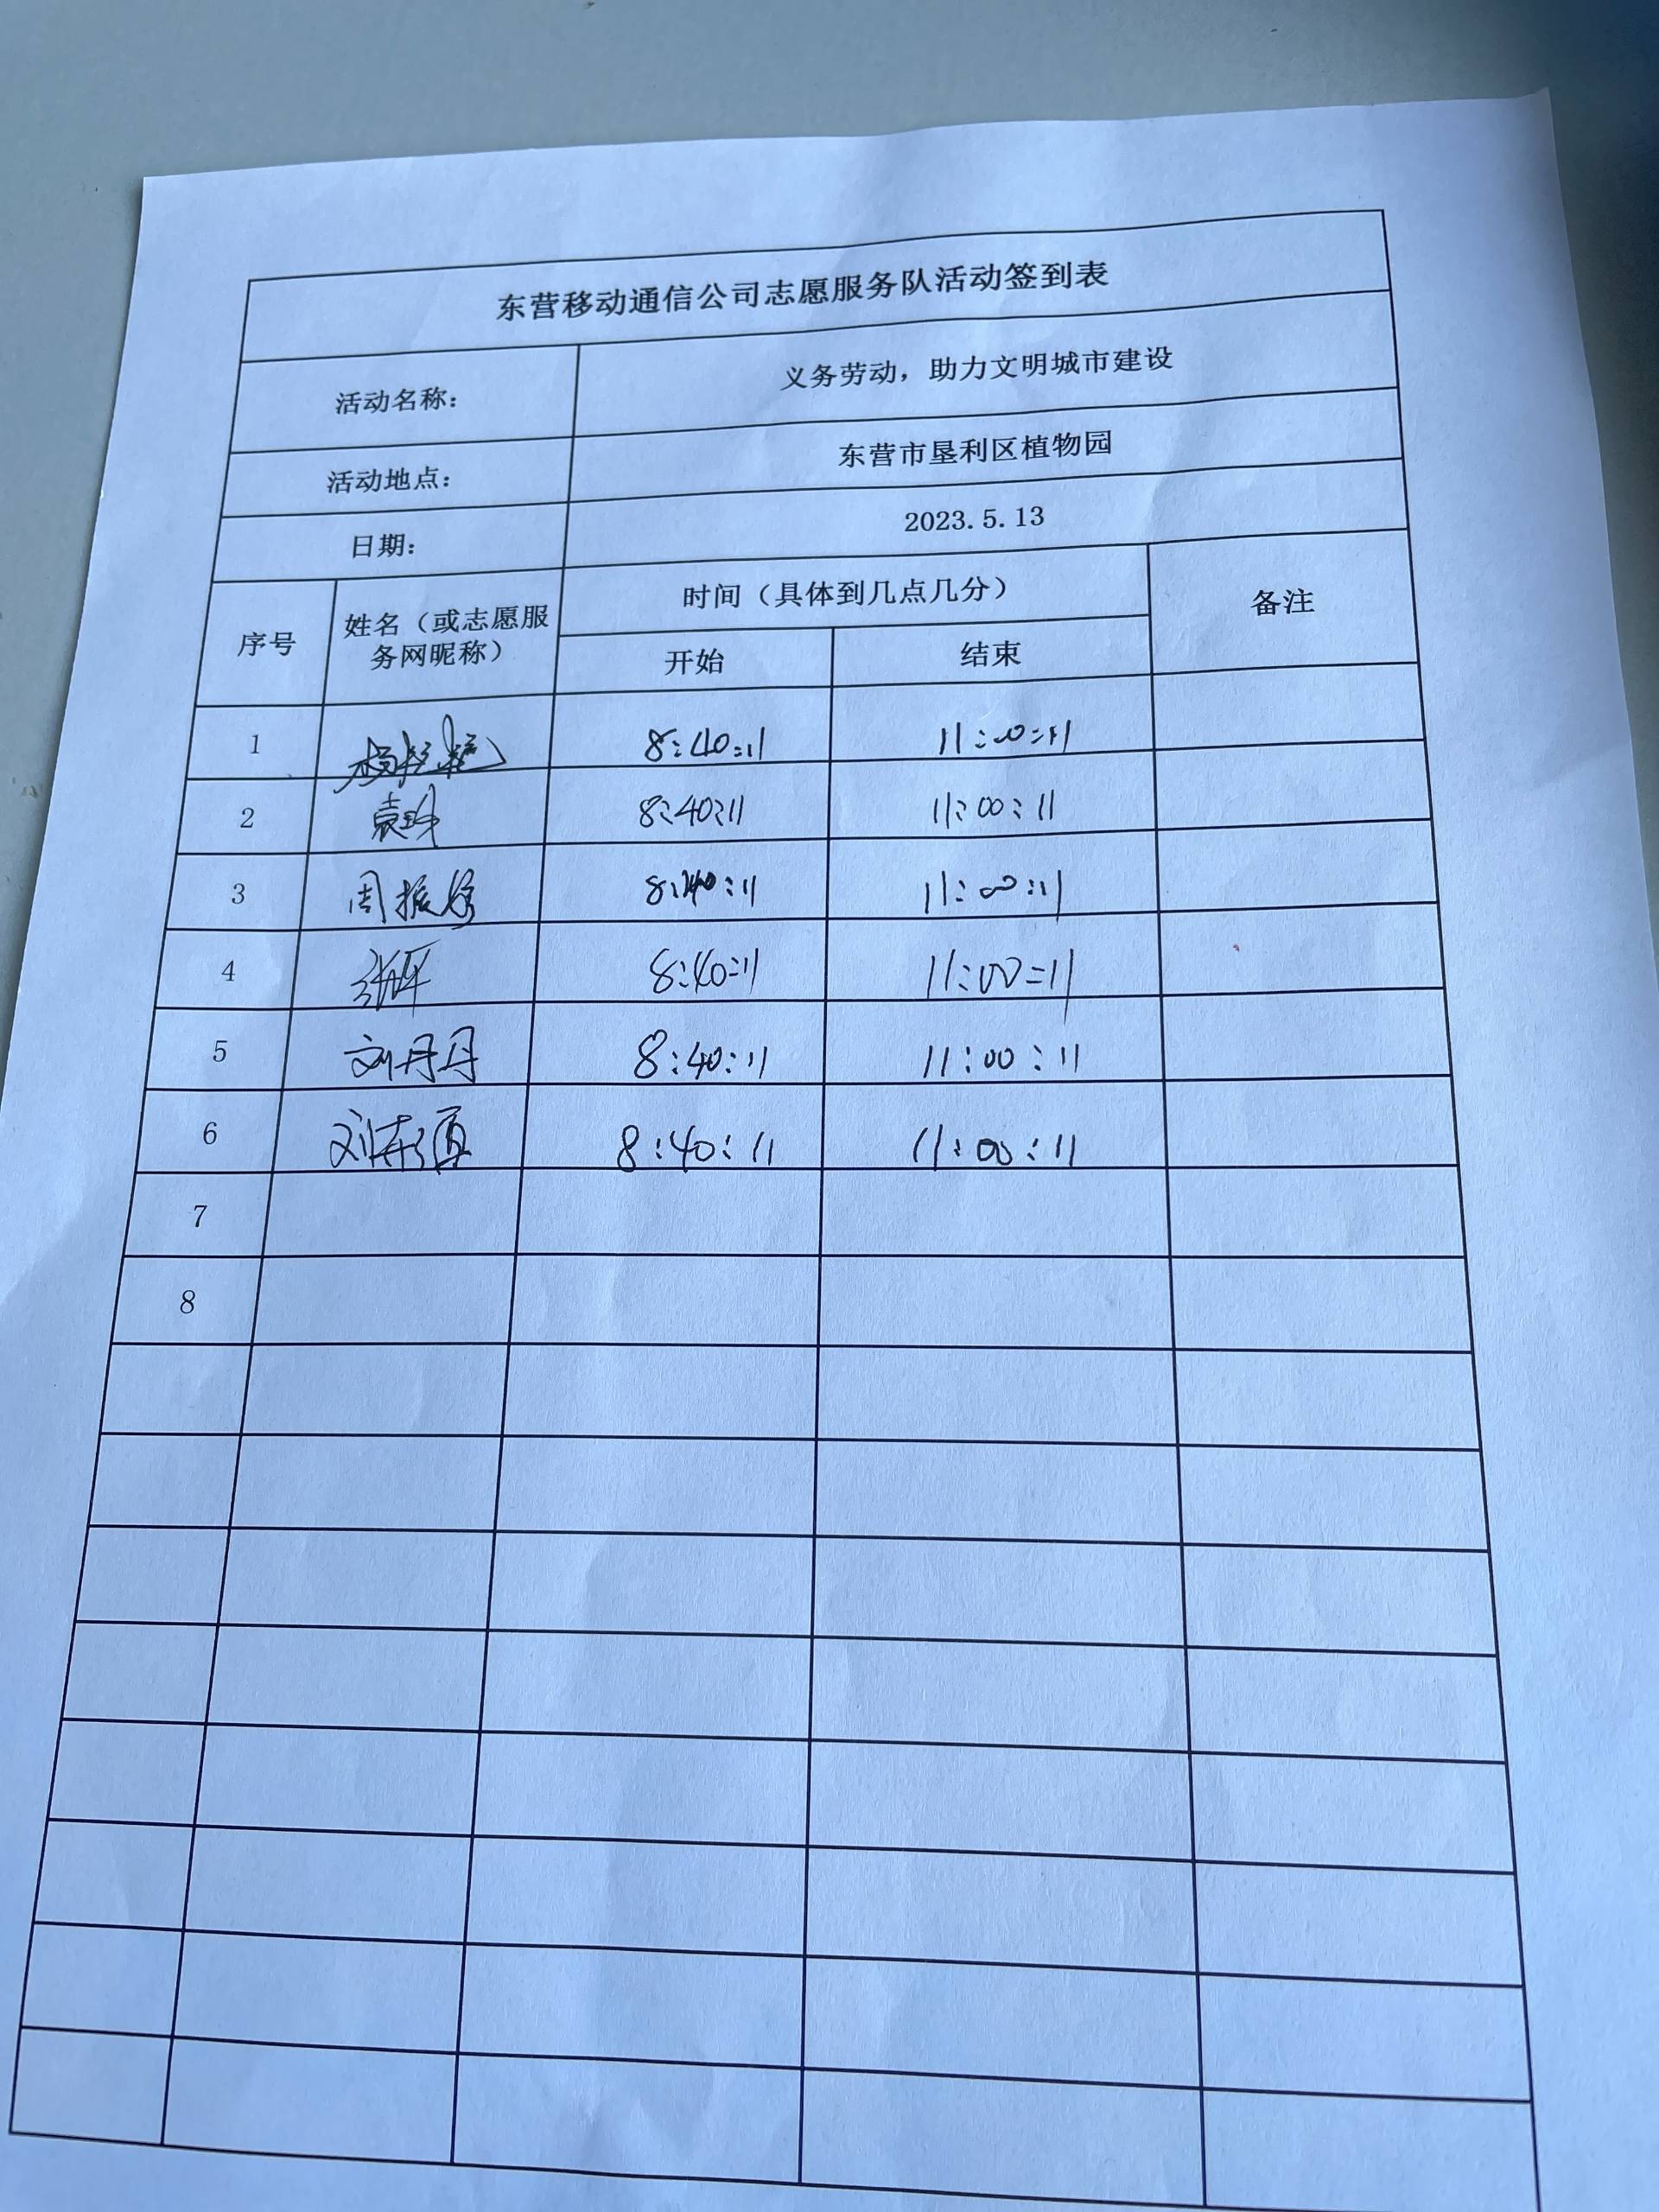 东营移动通信公司志愿服务队活动签到表
活动名称： 义务劳动，助力文明城市建设
活动地点： 东营市垦利区植物园
日期： 2023.5.13
序号 姓名（或志愿服务网昵称） 时间（具体到几点几分） 备注
开始 结束
1 8:40:11 11:00:11
2 8:40:11 11:00:11
3 周振 8:40:11 11:00:11
4 8:40:11 11:00:11
5 刘丹丹 8:40:11 11:00:11
6 刘 8:40:11 11:00:11
7
8